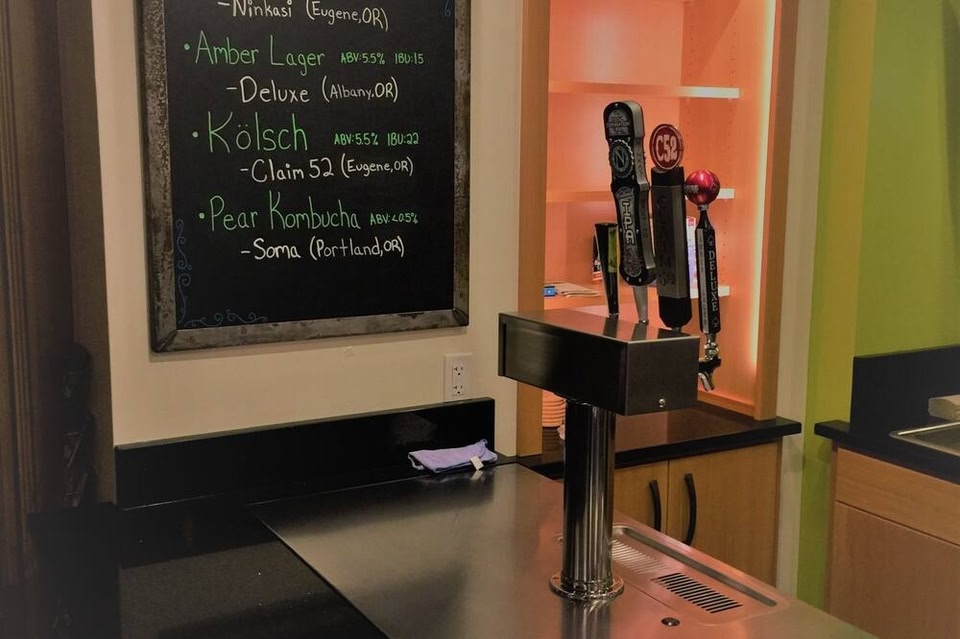 -Ninkasi (Eugene,OR)
•Amber Lager ABV:5.5% IBU:15
-Deluxe (Albany,OR)
•Kölsch ABV:5.5% IBU:22
-Claim 52 (Eugene,OR)
•Pear Kombucha ABV:<0.5%
-Soma (Portland,OR)
N
IPA
C52
DELUXE